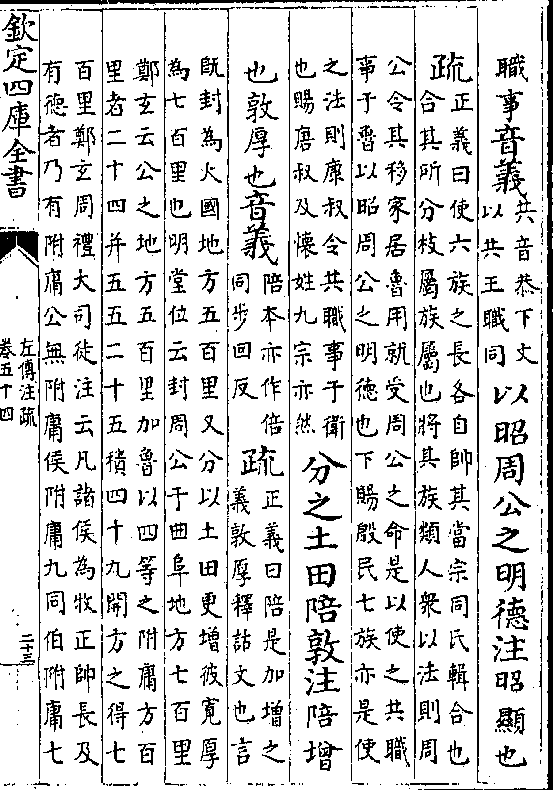 職事音義共音恭下文以共王職同以昭周公之明德注昭顯也
疏正義曰使六族之長各自帥其當宗同氏輯合也
合其所分枝屬族屬也將其族類人衆以法則周
公令其移家居魯用就受周公之命是以使之共職
事于魯以昭周公之明德也下賜殷民七族亦是使
之法則康叔令共職事于衛
也賜唐叔及懷姓九宗亦然分之土田陪敦注陪增
也敦厚也音義陪本亦作倍同步回反疏正義曰陪是加增之義敦厚釋詁文也言
既封為大國地方五百里又分以土田更增彼寛厚
為七百里也明堂位云封周公于曲阜地方七百里
鄭玄云公之地方五百里加魯以四等之附庸方百
里者二十四并五五二十五積四十九開方之得七
百里鄭玄周禮大司徒注云凡諸侯為牧正帥長及
有德者乃有附庸公無附庸侯附庸九同伯附庸七
欽定四庫全書
左傳注疏
卷五十四
二十三